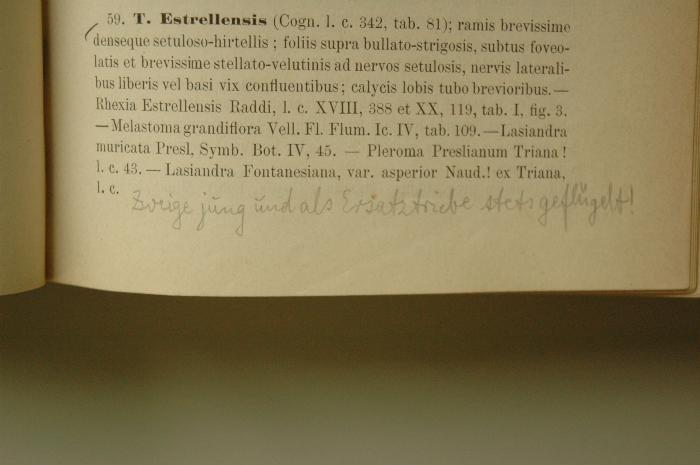 59. T. Estrellensis (Cogn. l. c. 342, tab. 81); ramis brevissime
denseque setuloso-hirtellis; foliis supra bullato-strigosis, subtus foveo-
latis et brevissime stellato-velutinis ad nervos setulosis, nervis laterali-
bus liberis vel basi vix confluentibus; calycis lobis tubo brevioribus.—
Rhexia Estrellensis Raddi, l. c. XVIII, 388 et XX, 119, tab. I, fig. 3.
—Melastoma grandiflora Vell. Fl. Flum. Ic. IV, tab. 109.—Lasiandra
muricata Presl, Symb. Bot. IV, 45. — Pleroma Preslianum Triana!
l. c. 43. — Lasiandra Fontanesiana, var. asperior Naud.! ex Triana,
l. c.
Zweige jung und als Ersatztriebe stets geflügelt!